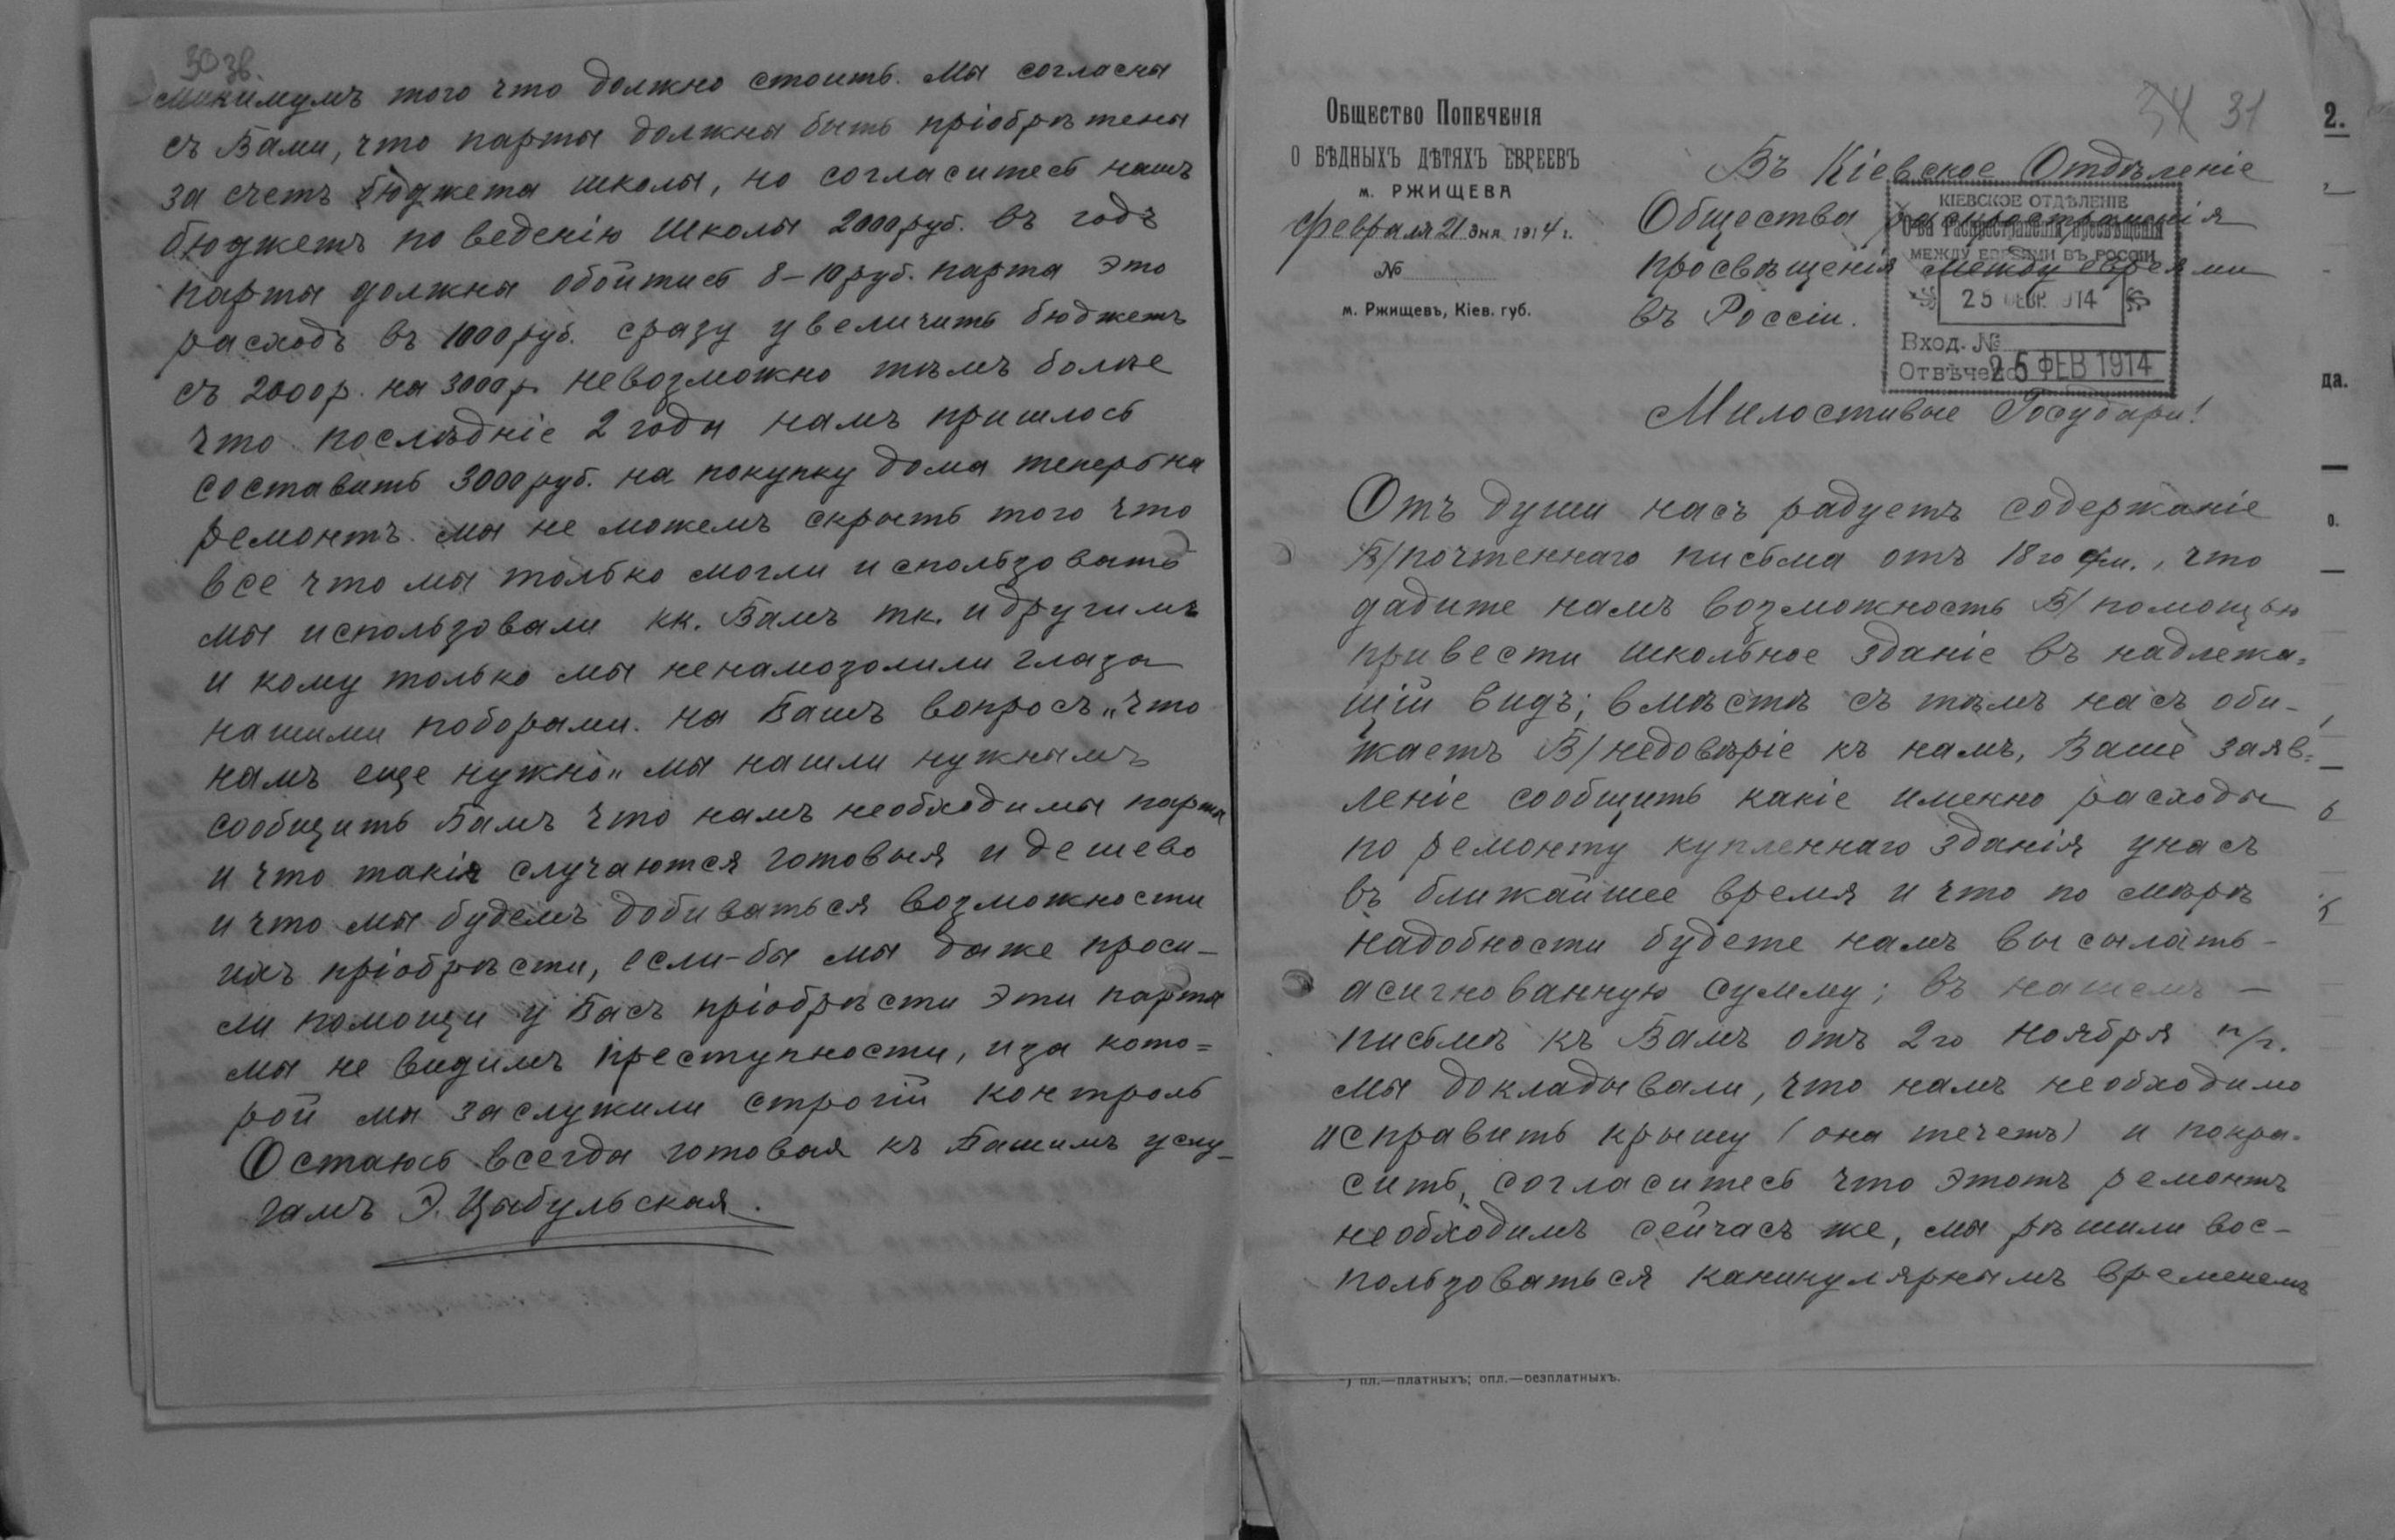 30 зв.
минимумъ того что должно стоить. Мы согласны
съ Вами, что парты должны быть пріобрѣтены
за счетъ бюджета школы, но согласитесь нашъ
бюджетъ по веденію школы 2000 руб. въ годъ
парты должны обойтись 8–10 руб. парта это
расходъ въ 1000 руб. сразу увеличить бюджетъ
съ 2000 р. на 3000 р. невозможно тѣмъ болѣе
что послѣдніе 2 года намъ пришлось
составить 3000 руб. на покупку дома теперь на
ремонтъ. мы не можемъ скрыть того что
все что мы только могли использовать
мы использовали кк. Вамъ тк. и другимъ
и кому только мы ненамозолили глаза
нашими поборами. на Вашъ вопросъ „что
намъ еще нужно„ мы нашли нужнымъ
сообщить Вамъ что намъ необходимы парты
и что такія случаются готовыя и дешево
и что мы будемъ добиваться возможности
ихъ пріобрѣсти, если-бы мы даже проси-
ли помощи у Васъ пріобрѣсти эти парты
мы не видимъ преступности, изза кото=
рой мы заслужили строгій контроль
Остаюсь всегда готовая къ Вашимъ услу-
гамъ Э. Цыбульская.
34 31
Общество Попеченія
о бѣдныхъ дѣтяхъ евреевъ
м. РЖИЩЕВА
Февраля 21 дня 1914 г.
№
м. Ржищевъ, Кіев. губ.
Въ Кіевское Отдѣленіе
Общества распространенія
просвѣщенія между евреями
въ Россіи.
КІЕВСКОЕ ОТДѢЛЕНІЕ
О-ва Распространенія просвѣщенія
МЕЖДУ ЕВРЕЯМИ ВЪ РОССІИ
25 ФЕВР. 914
Вход. №
Отвѣчено 25 ФЕВ 1914
Милостивые Государи!
Отъ души насъ радуетъ содержаніе
В/почтеннаго письма отъ 18го фм., что
дадите намъ возможность В/помощью
привести школьное зданіе въ надлежа=
щій видъ; вмѣстѣ съ тѣмъ насъ оби-
жаетъ В/недовѣріе къ намъ, Ваше заяв=
леніе сообщить какіе именно расходы
по ремонту купленнаго зданія унасъ
въ ближайшее время и что по мѣрѣ
надобности будете намъ высылать-
асигнованную сумму; въ нашемъ –
письмѣ къ Вамъ отъ 2го Ноября п/г.
мы докладывали, что намъ необходимо
исправить крышу (она течетъ) и покра-
сить, согласитесь что этотъ ремонтъ
необходимъ сейчасъ же, мы рѣшили вос-
пользоваться каникулярнымъ временемъ
пл.—платныхъ; опл.—безплатныхъ.
2.
да.
о.